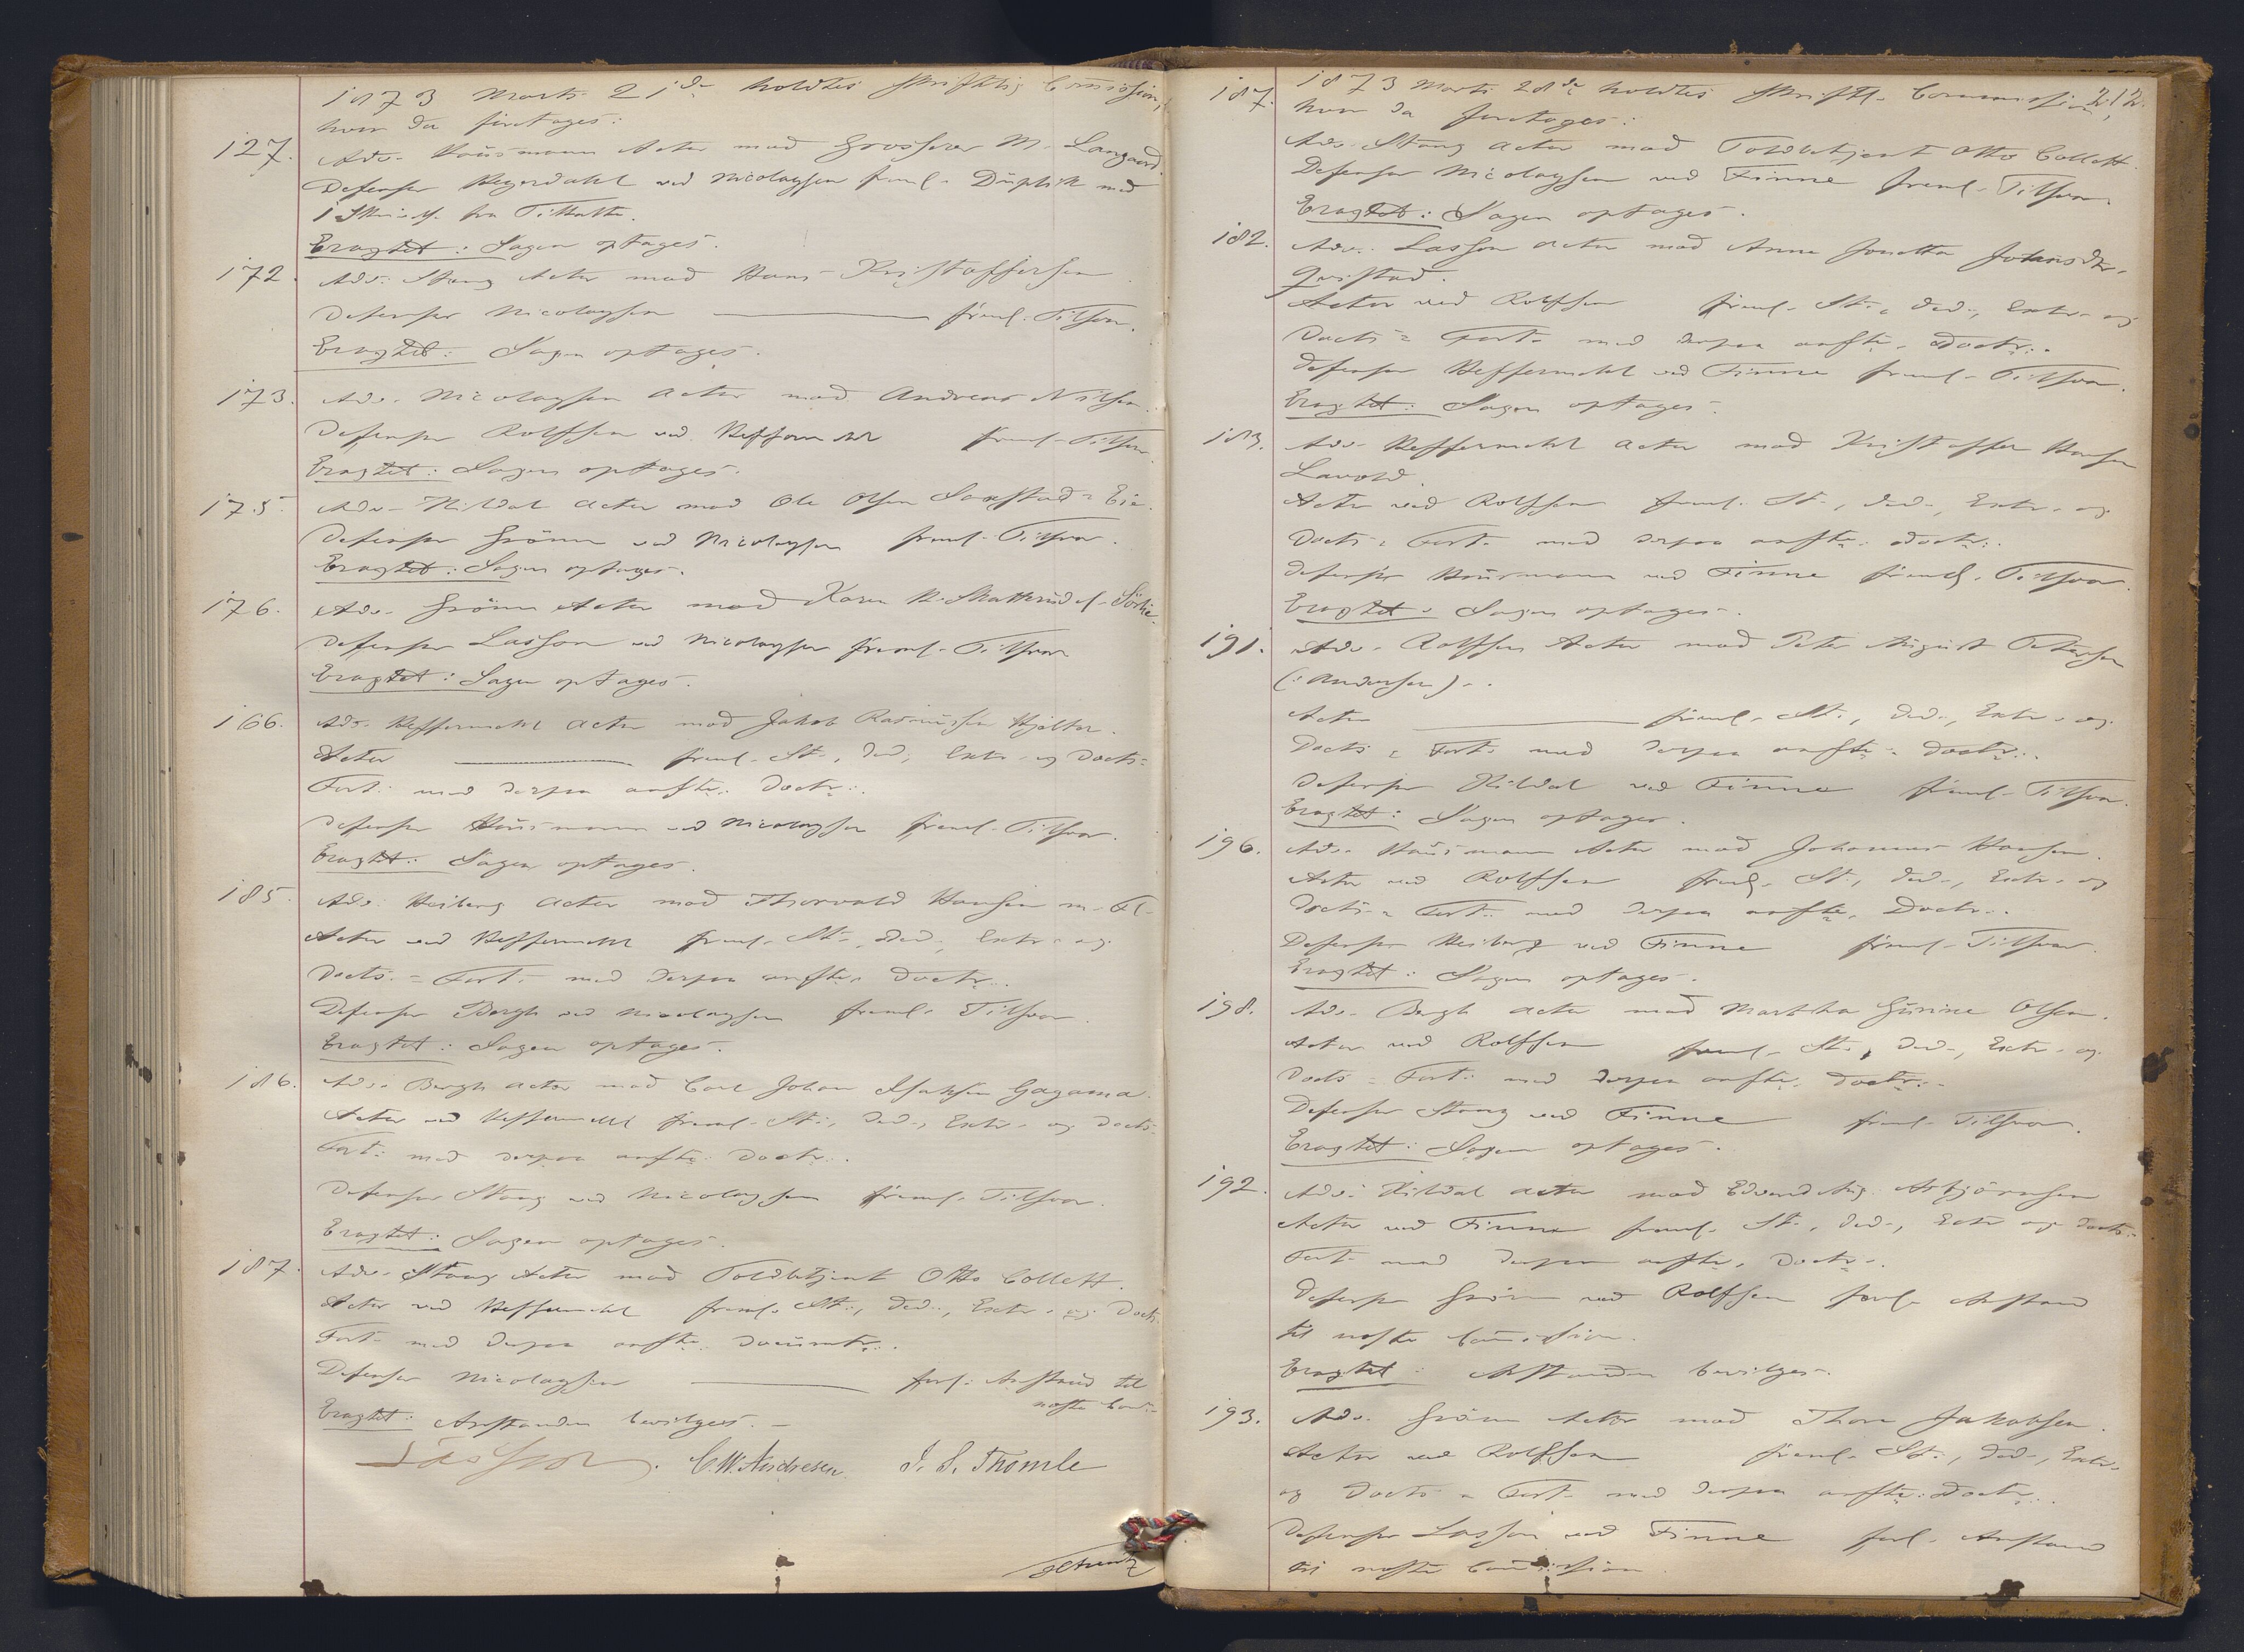 1873 Marts 21de holdtes skriftlig Comission,
hvor da foretages:
127. Adv. Hausmann Actor mod Grosserer M. Langaard.
Defensor Hegerdahl ved Nicolaysen freml. Duplik med
1 Skrivelse fra Tiltalte.
Eragtet: Sagen optages.
172. Adv. Stang Actor mod Hans Kristoffersen
Defensor Nicolaysen freml. Tilsvar.
Eragtet: Sagen optages.
173. Adv. Nicolaysen Actor mod Andreas Nilsen.
Defensor Rolfsen ved Heffermehl freml. Tilsvar.
Eragtet: Sagen optages.
175. Adv. Kildal Actor mod Ole Olsen Eie.
Defensor Grönn ved Nicolaysen freml. Tilsvar.
Eragtet: Sagen optages.
176. Adv. Grönn Actor mod Karen
Defensor Lasson ved Nicolaysen freml. Tilsvar
Eragtet: Sagen optages.
166. Adv. Heffermehl Actor mod Jakob Rasmussen
Actor freml. St., Ded., Extr. og Docts=
Fort. med derpaa anfte. Doctr.
Defensor Hausmann ved Nicolaysen freml. Tilsvar.
Eragtet: Sagen optages.
185. Adv. Heiberg Actor mod Thorvald Hansen m. Fl.
Actor ved Heffermehl freml. St., Ded., Extr. og
Docts.=Fort. med derpaa anfte. Doctr.
Defensor Bergh ved Nicolaysen freml. Tilsvar.
Eragtet: Sagen optages.
186. Adv. Bergh Actor mod Carl Johan Isaksen Gagama.
Actor ved Heffermehl freml. St., Ded., Extr. og Docts=
Fort. med derpaa anfte. Doctr.
Defensor Stang ved Nicolaysen freml. Tilsvar.
Eragtet: Sagen optages.
187. Adv. Stang Actor mod Toldbetjent Otto Collett.
Actor ved Heffermehl freml. St., Ded., Extr. og Docts.
Fort. med derpaa anfte. Documtr.
Defensor Nicolaysen forl. Anstand til
næste Com=
Eragtet: Anstanden bevilges.
Lasson. C.W. Andresen J. S. Thomle
187. 1873 Marts 28de holdtes skriftl. Commission, 212.
hvor da foretages:
Adv. Stang Actor mod Toldbetjent Otto Collett.
Defensor Nicolaysen ved Finne freml. Tilsvar.
Eragtet: Sagen optages.
182. Adv. Lasson Actor mod Anne Jonetta Johansdtr.
Qvistad.
Actor ved Rolfsen freml. St., Ded., Extr. og
Docts=Fort. med derpaa anfte. Doctr.
Defensor Heffermehl ved Finne freml. Tilsvar.
Eragtet: Sagen optages.
183. Adv. Heffermehl Actor mod Kristoffer Hansen
Lavold.
Actor ved Rolfsen freml. St., Ded., Extr. og
Docts=Fort. med derpaa anfte. Doctr.
Defensor Hausmann ved Finne freml. Tilsvar.
Eragtet: Sagen optages.
191. Adv. Rolfsen Actor mod Peter August Petersen
(: Andersen).
Actor freml. St., Ded., Extr. og
Docts=Fort. med derpaa anfte. Doctr.
Defensor Kildal ved Finne freml. Tilsvar.
Eragtet: Sagen optages.
196. Adv. Hausmann Actor mod Johannes Hansen.
Actor ved Rolfsen freml. St., Ded., Extr. og
Docts=Fort. med derpaa anfte. Doctr.
Defensor Heiberg ved Finne freml. Tilsvar.
Eragtet: Sagen optages.
198. Adv. Bergh Actor mod Marthe Gurine Olsen.
Actor ved Rolfsen freml. St., Ded., Extr. og
Docts=Fort. med derpaa anfte. Doctr.
Defensor Stang ved Finne freml. Tilsvar.
Eragtet: Sagen optages.
192. Adv. Kildal Actor mod Edvard Aug. Asbjörnsen
Actor ved Finne freml. St., Ded., Extr. og Docts=
Fort. med derpaa anfte. Doctr.
Defensor Grönn ved Rolfsen forl. Anstand
til næste Comission.
Eragtet: Anstanden bevilges.
193. Adv. Grönn Actor mod Thore Jakobsen.
Actor ved Rolfsen freml. St., Ded., Extr.
og Docts=Fort. med derpaa anfte. Doctr.
Defensor Lasson ved Finne forl. Anstand
til næste Comission.